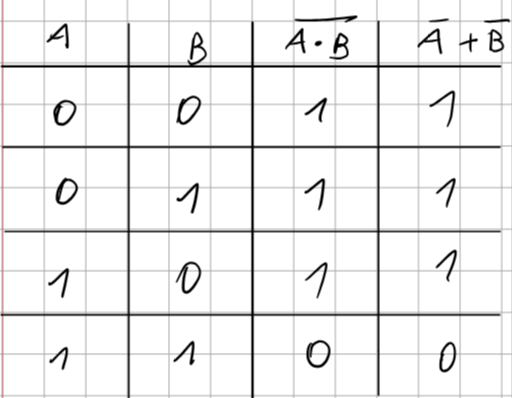 A B A̅·̅B̅ A̅ + B̅
0 0 1 1
0 1 1 1
1 0 1 1
1 1 0 0